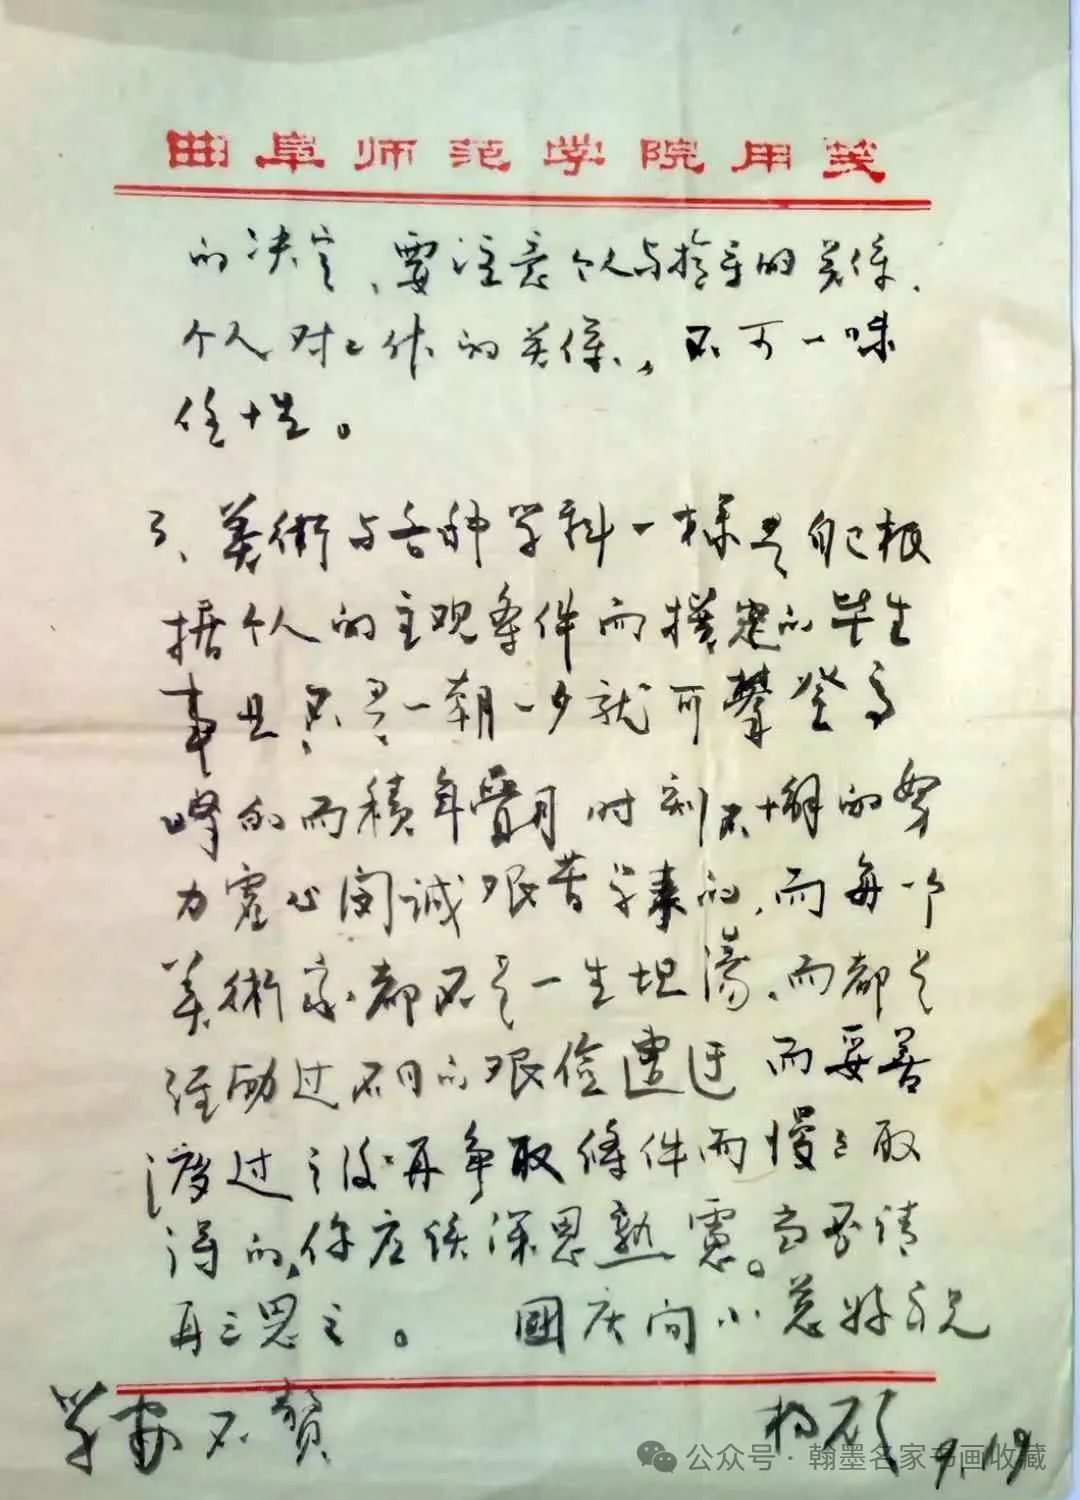 曲阜师范学院用笺
的决定、要注意个人与指导的关系、
个人对工作的关係、不可一味
任性。
3、美術与各种学科一样是自己根
据个人的主观条件而摸定的毕生
事且不是一朝一夕就可攀登高
峰的而積年疊月时刻不懈的努
力虚心 诚艰苦学来的，而每个
美術家都不是一生坦蕩，而都是
经励过不同的艰俭遭迂而妥善
渡过之後再争取條件而慢々取
得的，你应该深思熟慮。 请
再三思之。 國庆间小
学安不赘
9.19
公众号·翰墨名家书画收藏